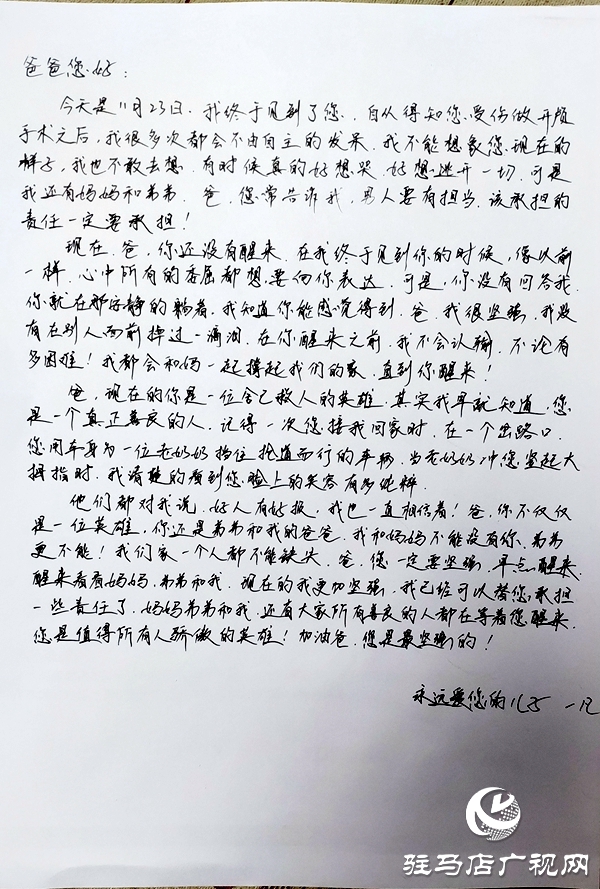 爸爸您好：
今天是11月23日，我终于见到了您。自从得知您受伤做开颅
手术之后，我很多次都会不由自主的发呆。我不能想象您现在的
样子，我也不敢去想。有时候真的好想哭，好想逃开一切，可是
我还有妈妈和弟弟。爸，您常告诉我，男人要有担当，该承担的
责任一定要承担！
现在，爸，你还没有醒来。在我终于见到你的时候，像以前
一样，心中所有的委屈都想要向你表达，可是，你没有回答我，
你就在那安静的躺着，我知道你能感觉得到。爸，我很坚强，我没
有在别人面前掉过一滴泪。在你醒来之前，我不会认输，不论有
多困难！我都会和妈一起撑起我们的家，直到你醒来！
爸，现在的你是一位舍己救人的英雄，其实我早就知道，您
是一个真正善良的人，记得一次您接我回家时，在一个岔路口，
您用车身为一位老奶奶挡住抢道而行的车辆，当老奶奶冲您竖起大
拇指时，我清楚的看到您脸上的笑容有多纯粹。
他们都对我说，好人有好报，我也一直相信着！爸，你不仅仅
是一位英雄，你还是弟弟和我的爸爸，我和妈妈不能没有你，弟弟
更不能！我们家一个人都不能缺失。爸，您一定要坚强，早点醒来，
醒来看看妈妈，弟弟和我。现在的我更加坚强，我已经可以替您承担
一些责任了，妈妈弟弟和我，还有大家所有善良的人都在等着您醒来，
您是值得所有人骄傲的英雄！加油爸，您是最坚强的！
永远爱您的儿子 一凡
驻马店广视网